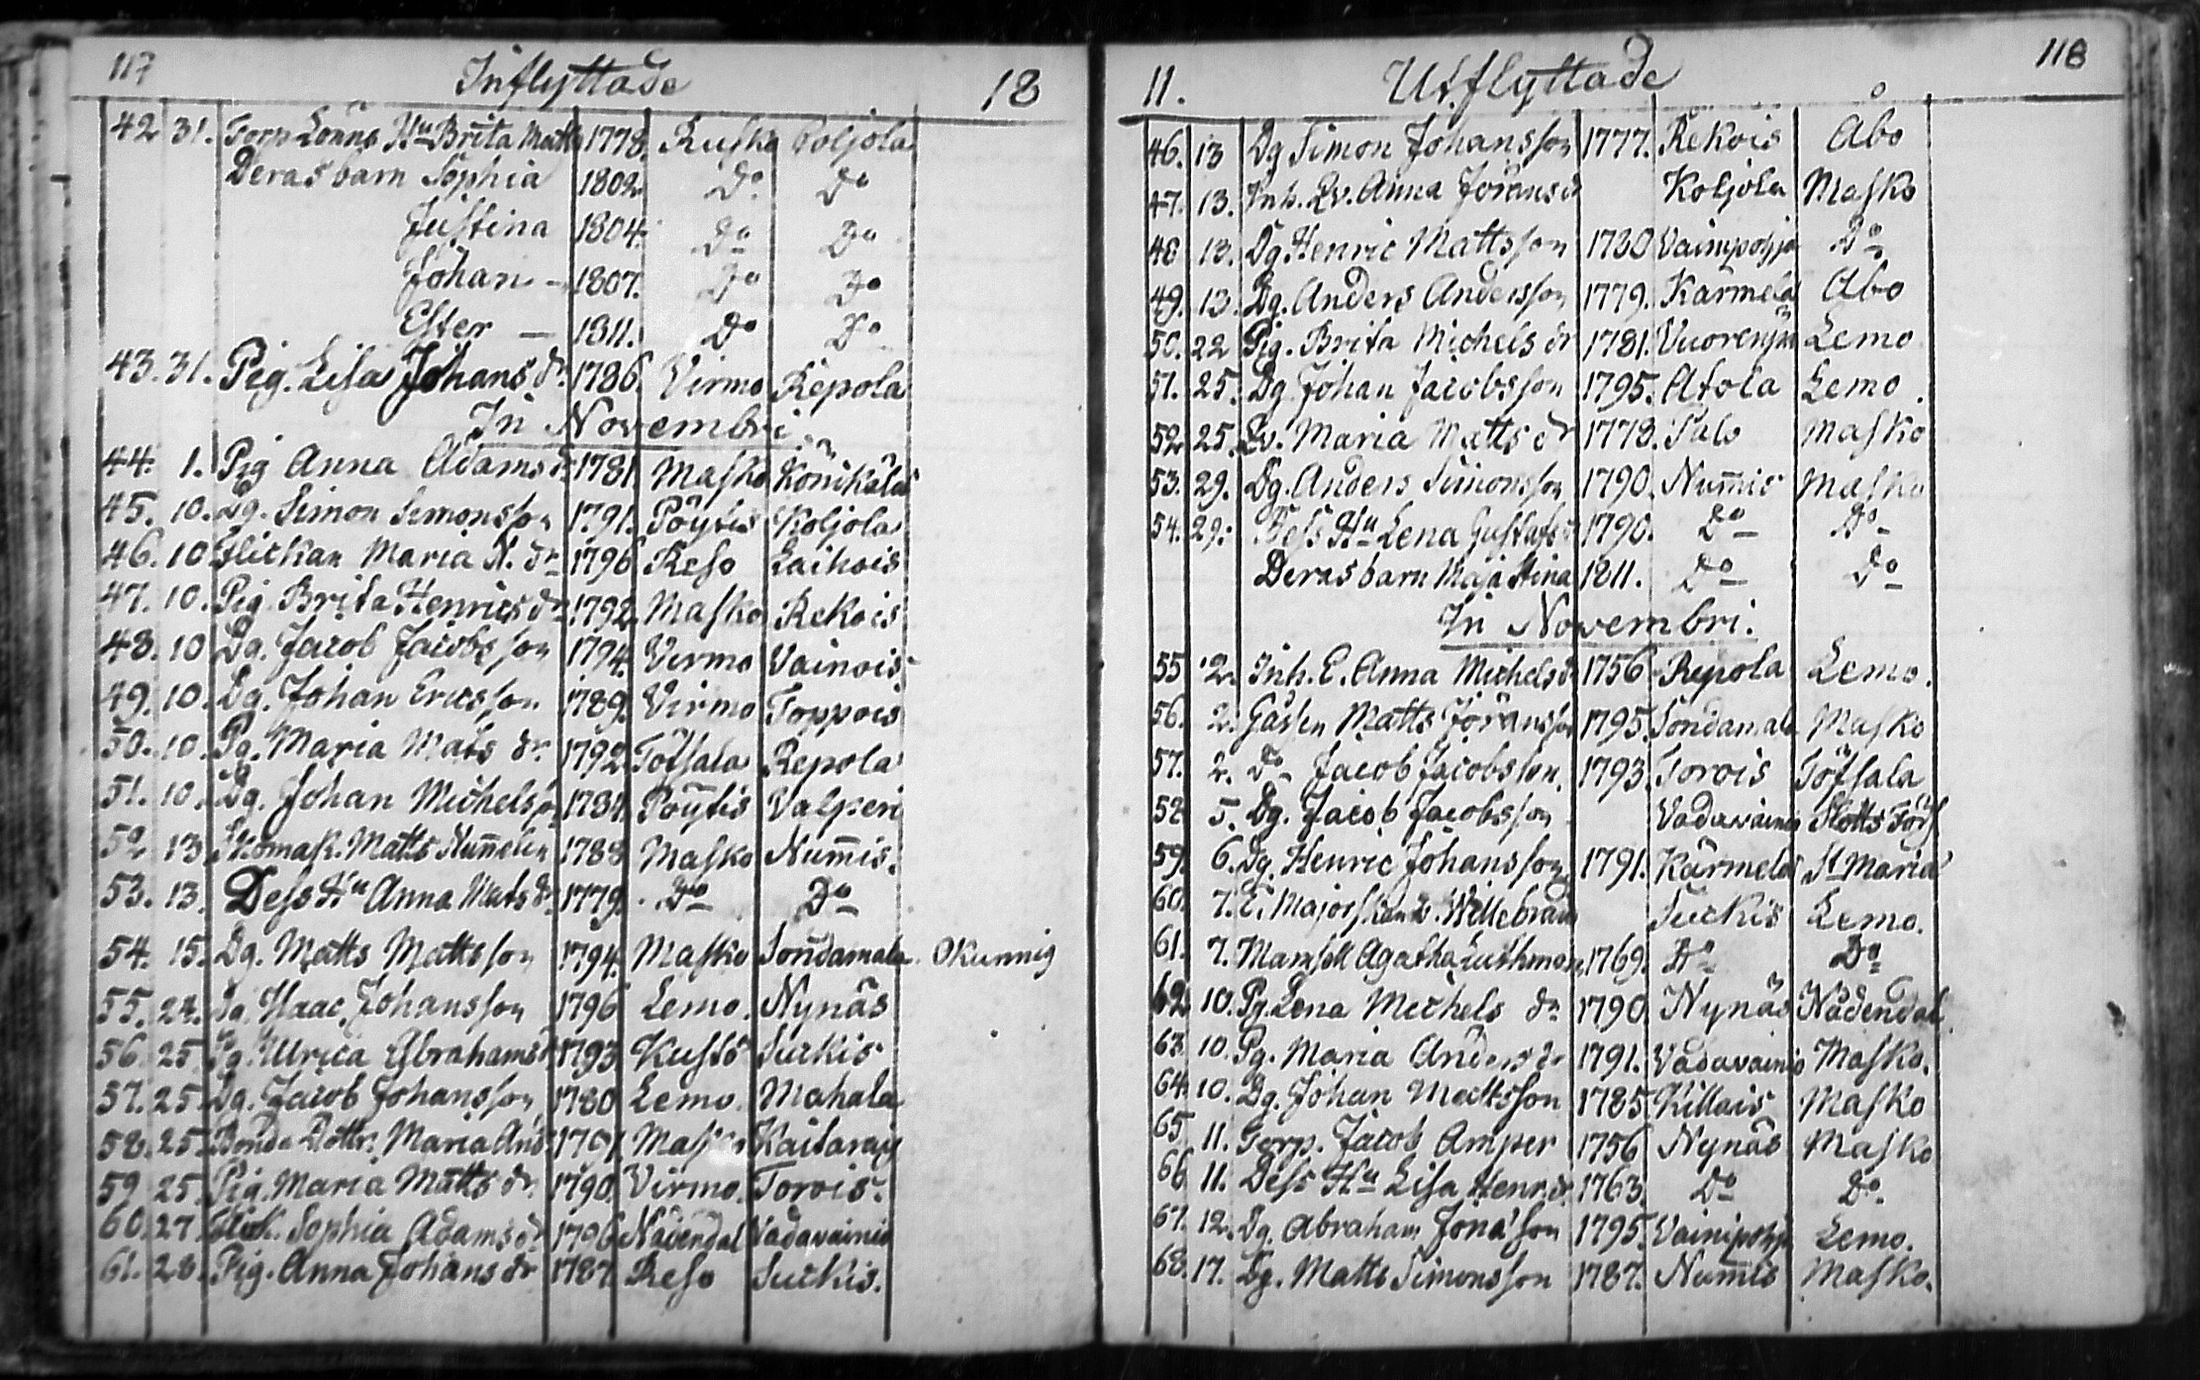 117 Inflyttade 18
42 31. Torp Lönns Hu Brita Matts 1778. Rusko Poljola
Deras barn Sophia 1802 Do Do
Justina 1804. Do Do
Johan - 1807. Do Do
Ester — 1811. Do Do
43. 31. Pig. Lisa Johans dr. 1786. Virmo Repola
In Novembri
44. 1. Pig Anna Adams d. 1781. Masko Könikälä
45. 10. Dg. Simon Simonsson 1791. Pöytis Koljola
46. 10 Flickan Maria N. dr 1796 Reso Laihois
47. 10. Pig. Brita Henrics dr 1792. Masko Rekois
48. 10 Dg. Jacob Jacobsson 1794. Virmo Vainois
49. 10. Dg. Johan Ericsson 1789. Virmo Toppois
50. 10. Pg. Maria Mats dr. 1792. Töfsala Repola
51. 10. Dg. Johan Michelsson 1784. Pöytis Valperi
52 13 Skomak. Matts Num̄elin 1788 Masko Num̄is.
53. 13. Dess Hu Anna Mats dr. 1779. Do Do
54. 15. Dg. Matts Mattsson 1794. Masko Sondamala Okunnig
55. 24. Dg. Isaac Johansson 1796 Lemo. Nynäs
56. 25 Pg. Ulrica Abrahams d 1793 Kustö Suckis
57. 25 Dg. Jacob Johansson 1780 Lemo. Mahala
58. 25 Bonde Dottr. Maria And Kaitaray
59 25. Pig. Maria Matts dr. 1790. Virmo. Torois.
60. 27. Flick. Sophia Adams dr 1796 Nådendal Vadavainio
61. 28. Pig. Anna Johans dr 1787 Reso Suckis.
11. Utflyttade 118
46. 13 Dg Simon Johansson 1777. Rekois Åbo
47. 13. Inh. Ev. Anna Jörans d Koljola Masko
48 13. Dg. Henric Mattsson 1730 Vainipohja Do
49. 13. Dg. Anders Andersson 1779. Kärmelä Åbo
50. 22 Pig. Brita Michels dr 1781. Vuorenpä Lemo
51. 25. Dg. Johan Jacobsson 1795. Atola Lemo.
52 25. Ev. Maria Matts dr 1778. Palo Masko
53. 29. Dg. Anders Simonsson 1790. Num̄is Masko
54. 29. Dess Hu Lena Gustafs d 1790. Do Do
Deras barn Maja Stina 1811. Do Do
In Novembri.
55 2. Inh. E. Anna Michels d 1756 Repola Lemo.
56. 2. Gåssen Matts Jöransson 1795. Sondamala Masko
57. 2. Do Jacob Jacobsson. 1793. Torois Töfsala
58 5. Dg. Jacob Jacobsson Vadavainio Slotts Förs
59. 6. Dg. Henric Johansson 1791. Kärmelä St Maria
60. 7. E. Majorskan Willebrand Suckis Lemo.
61. 7. Mamsell Agatha Luthman 1769. Do Do
62 10. Pg. Lena Michels dr 1790 Nynäs Nådendal
63 10. Pg. Maria Anders dr 1791. Vadavainio Masko.
64. 10. Dg. Johan Mattsson 1785. Killais Masko
65 11. Torp. Jacob Amper 1756 Nynäs Masko
66 11. Dess Hu Lisa Henr. d. 1763 Do Do
67. 12. Dg. Abraham Jona'son 1795. Vainipohja Lemo.
68. 17. Dg. Matts Simonsson 1787. Num̄is Masko.